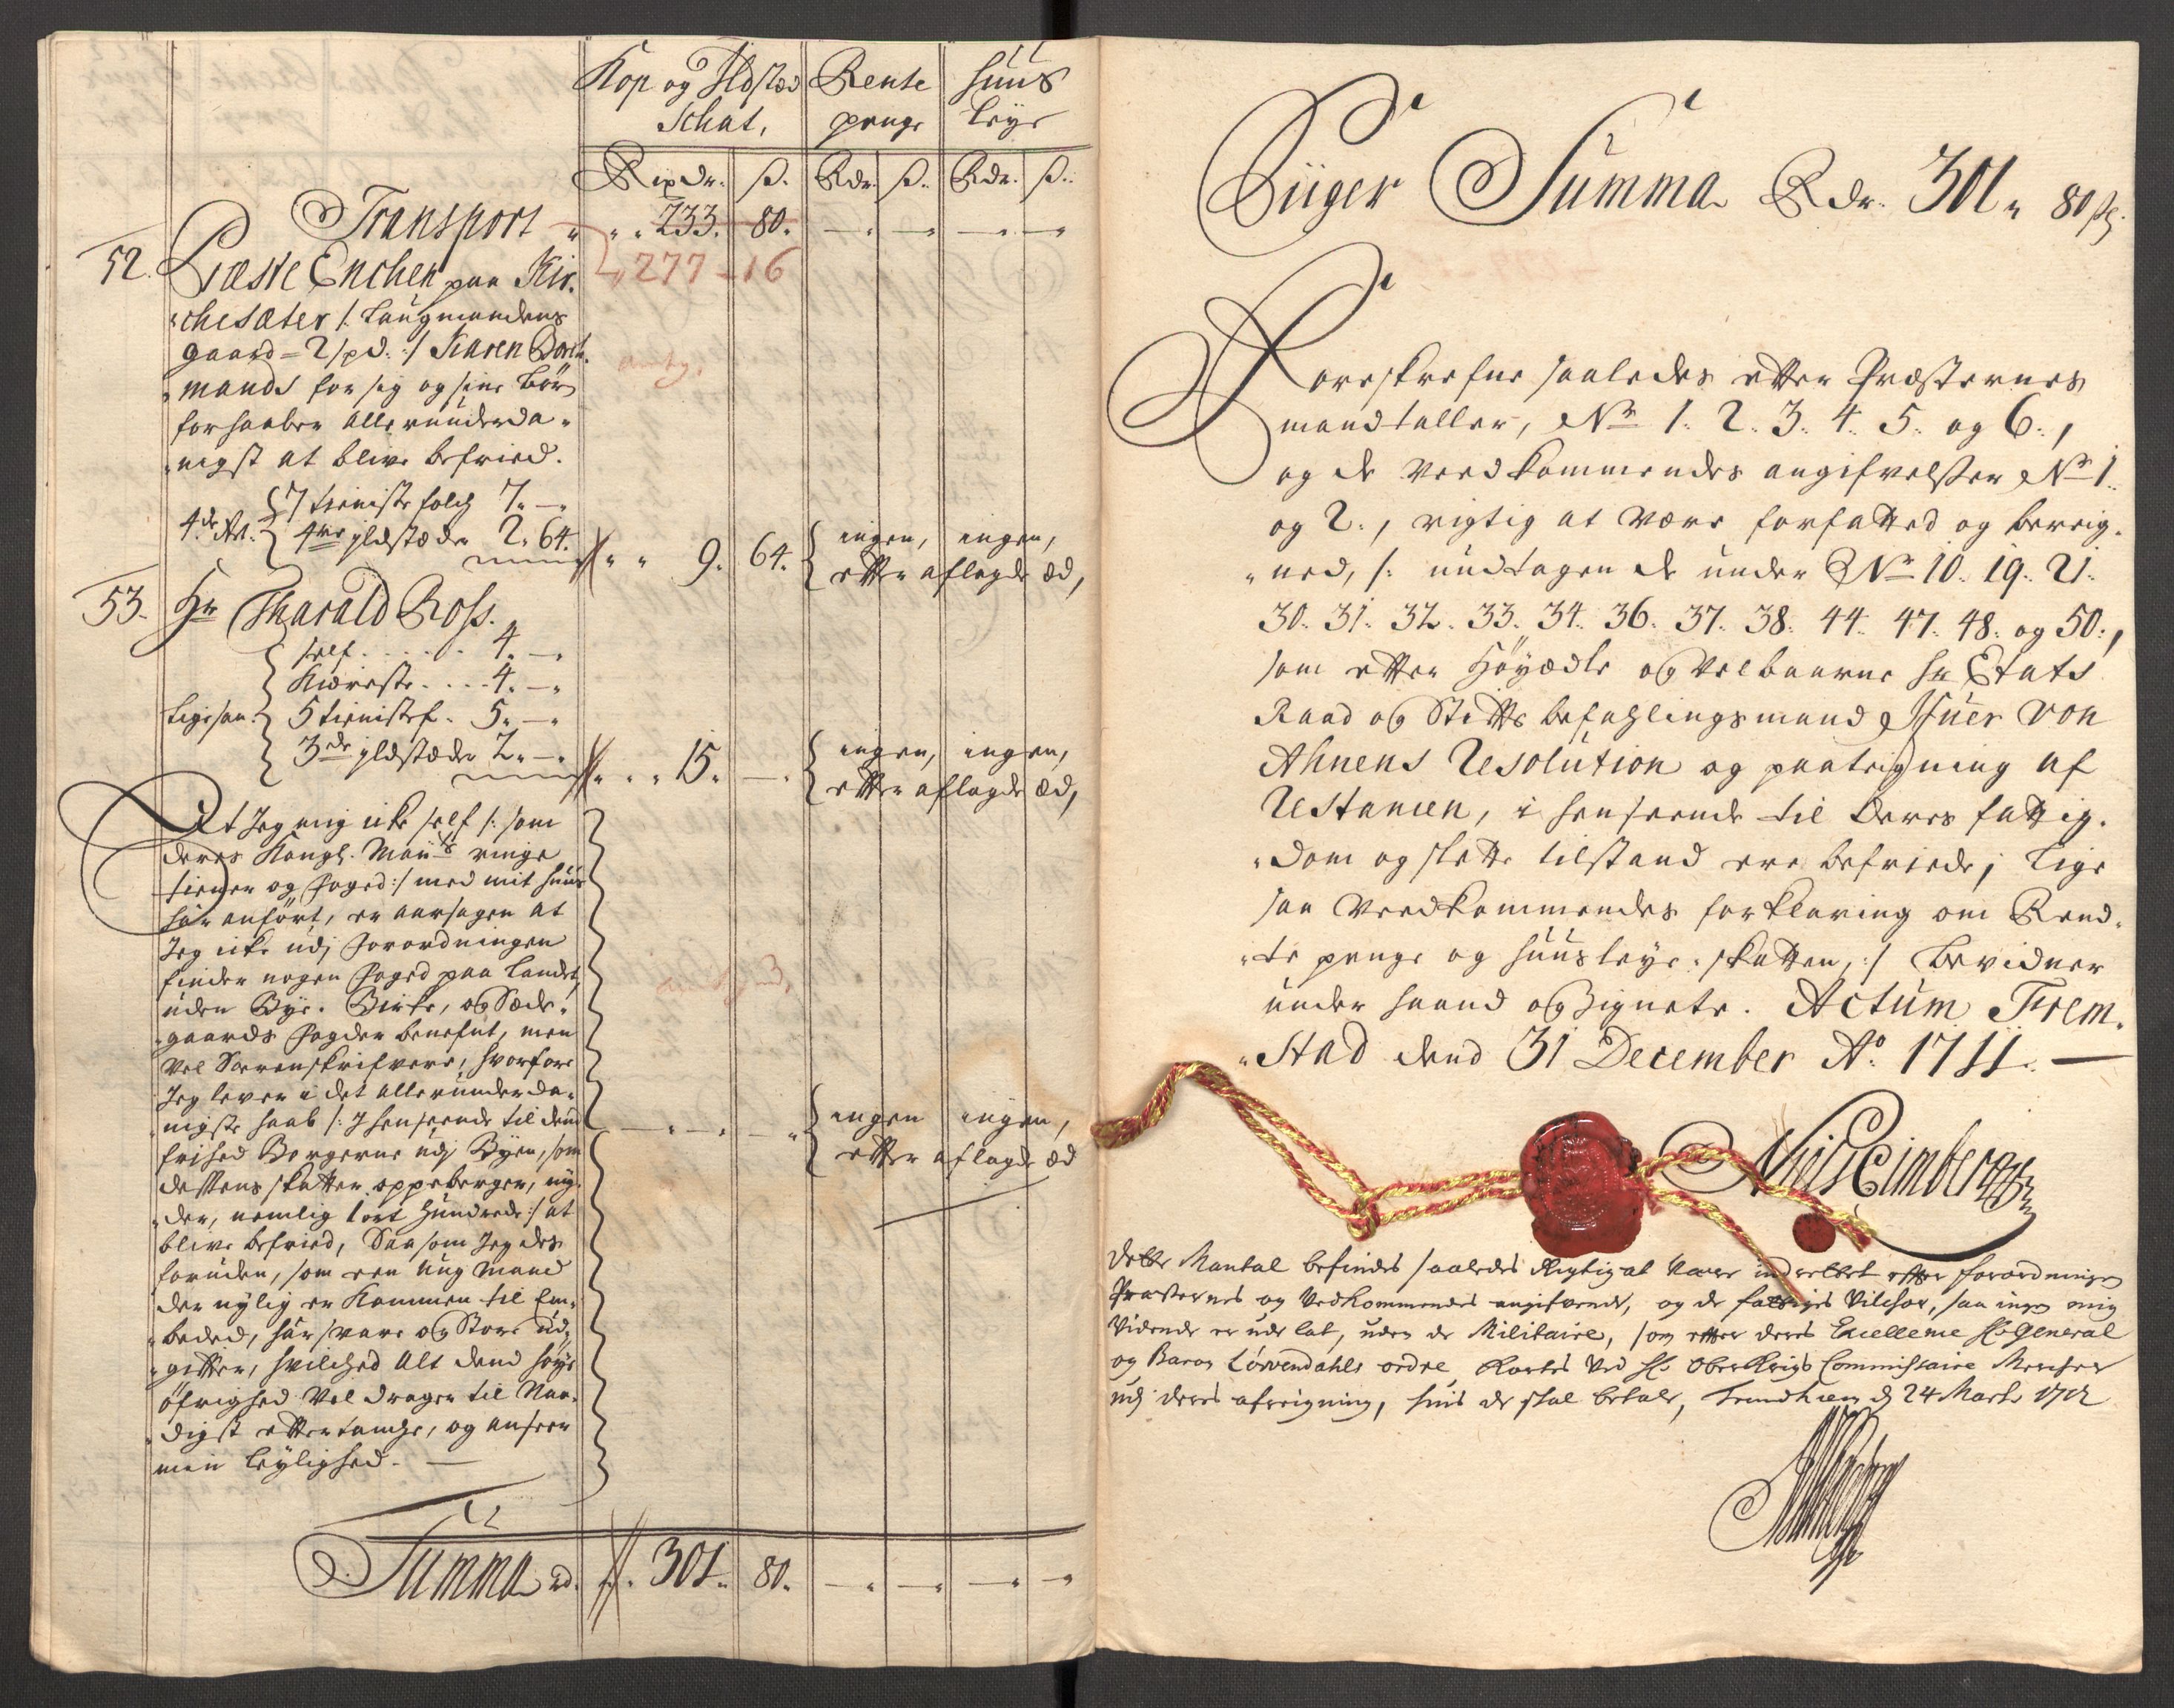 Kop og Ildsted Schat,
Rente penge
Huus Leye
Rixdr. ß. Rdr. ß. Rdr. ß.
Transport 233. 80.
277 - 16
52. Præste Enchen paa Kir-
chesæter /: Laugmandens
gaard = 2 spd. :/ Karen
mands for sig og sine Børn
forhaaber allerunderda-
nigst at blive befried.
7 tieniste folch 7. —
4de Art. 4re ildstæder 2. 64.
9. 64. ingen, ingen,
efter aflagde æd,
53. Hr Tharald Ross.
self . . . . . 4. —
Kiæreste . . . . 4. —
Ligesaa. 5 tienistef. 5. —
3de ildstæder 2. —
15. — ingen, ingen,
efter aflagde æd,
At Jeg mig icke self /: som
deres Kongl. Mayts ringe
tiener og foged :/ med mit huus
hår anført, er aarsagen at
Jeg icke udj forordningen
finder nogen foged paa Landet,
uden Bye- Birke, og Sæde-
gaards fogder benefnt, men
vel Sorenskrifvere, hvorfore
Jeg lever i det allerunderda-
nigste haab /: I henseende til dend
frihed Borgerne udj Byen, som
dessens skatter oppeberger, ny-
der, nemlig hundrede :/ at
blive befried, Saasom Jeg des
foruden, som een ung mand
der nylig er kommen til Em-
beded, har svare og Store ud-
gifter, hvilched alt dend høye
øfrighed vel drager til Naa-
digst eftertanche, og anseer
min leylighed. —
ingen ingen,
efter aflagde æd
Summa rd. 301. 80.
Siiger Summa Rdr. 301 80 ß.
Foreskrefne saaledes efter Præsternes
mandtaller, No 1. 2. 3. 4. 5. og 6.,
og de vedkommendes angifvelsser No 1.
og 2., rigtig at være forfatted og bereig-
ned, /: undtagen de under No 10. 19. 21.
30. 31. 32. 33. 34. 36. 37. 38. 44. 47. 48. og 50.,
som efter Høyædle og Velbaarne Hr Etats
Raad og Stiftsbefahlingsmand Ifuer von
Ahnens Resolution og paateigning af
Restancen, i henseende til deres fattig-
dom og slette tilstand ere befriede; Lige
saa Vedkommendes forklaring om Rend-
te penge og huusleye-skatten, :/ bevidner
under haand og Signete. Actum Trem-
Stad dend 31 December Ao 1711. —
Niels Eimberg
Dette Mantal befindes saaledes Rigtig at være indrettet efter forordningen
Præsternes og vedkommendes angifvende, og de fattiges Vilchor, saa ingen mig
vidende er udelat, uden de Militaire, som efter deres Excellence Hr General
og Baron Løvendahls ordre Kortes ved Hr Ober Krigs Commissaire
udj deres afreigning, hvis de skal betale, Trundhiem d 24 Marti 1712